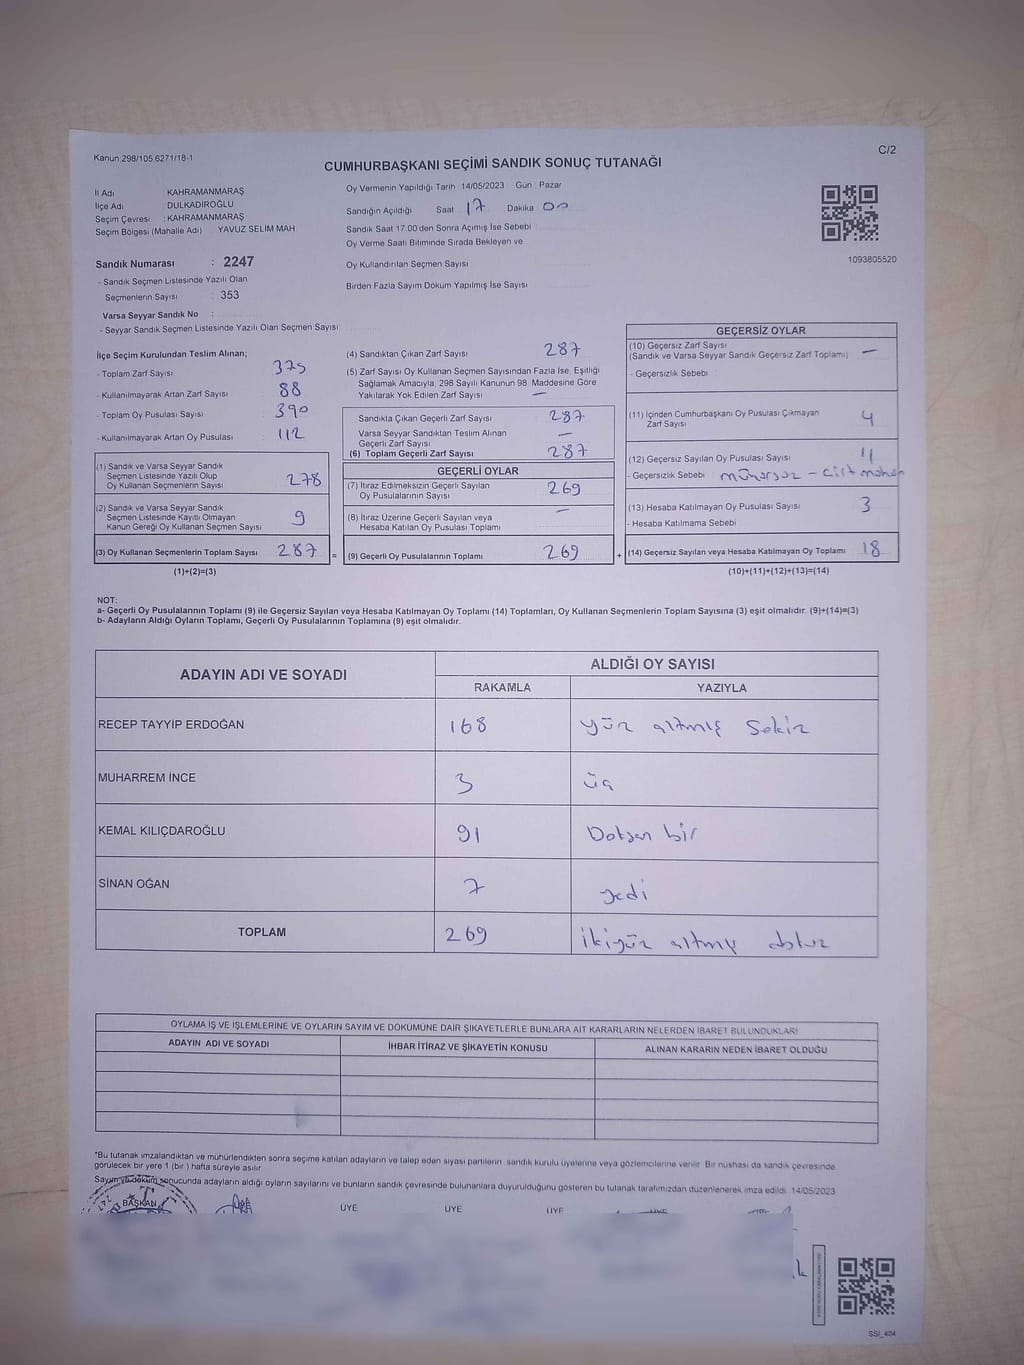 Kanun 298/105 6271/18-1
C/2
CUMHURBAŞKANI SEÇİMİ SANDIK SONUÇ TUTANAĞI
İl Adı KAHRAMANMARAŞ
İlçe Adı DULKADİROĞLU
Seçim Çevresi : KAHRAMANMARAŞ
Seçim Bölgesi (Mahalle Adı) YAVUZ SELİM MAH
Sandık Numarası : 2247
- Sandık Seçmen Listesinde Yazılı Olan
Seçmenlerin Sayısı : 353
Varsa Seyyar Sandık No :
- Seyyar Sandık Seçmen Listesinde Yazılı Olan Seçmen Sayısı
Oy Vermenin Yapıldığı Tarih 14/05/2023 Gün Pazar
Sandığın Açıldığı Saat 17 Dakika 00
Sandık Saat 17 00'den Sonra Açımış İse Sebebi
Oy Verme Saati Bitiminde Sırada Bekleyen ve
Oy Kullandırılan Seçmen Sayısı
Birden Fazla Sayım Döküm Yapılmış İse Sayısı
1093805520
İlçe Seçim Kurulundan Teslim Alınan;
- Toplam Zarf Sayısı 375
- Kullanılmayarak Artan Zarf Sayısı 88
- Toplam Oy Pusulası Sayısı 390
- Kullanılmayarak Artan Oy Pusulası 112
(1) Sandık ve Varsa Seyyar Sandık
Seçmen Listesinde Yazılı Olup
Oy Kullanan Seçmenlerin Sayısı 278
(2) Sandık ve Varsa Seyyar Sandık
Seçmen Listesinde Kayıtlı Olmayan
Kanun Gereği Oy Kullanan Seçmen Sayısı 9
(3) Oy Kullanan Seçmenlerin Toplam Sayısı 287 =
(1)+(2)=(3)
(4) Sandıktan Çıkan Zarf Sayısı 287
(5) Zarf Sayısı Oy Kullanan Seçmen Sayısından Fazla İse, Eşitliği
Sağlamak Amacıyla, 298 Sayılı Kanunun 98. Maddesine Göre
Yakılarak Yok Edilen Zarf Sayısı —
Sandıkta Çıkan Geçerli Zarf Sayısı 287
Varsa Seyyar Sandıktan Teslim Alınan
Geçerli Zarf Sayısı —
(6) Toplam Geçerli Zarf Sayısı 287
GEÇERLİ OYLAR
(7) İtiraz Edilmeksizin Geçerli Sayılan
Oy Pusulalarının Sayısı 269
(8) İtiraz Üzerine Geçerli Sayılan veya
Hesaba Katılan Oy Pusulası Toplamı —
(9) Geçerli Oy Pusulalarının Toplamı 269 +
GEÇERSİZ OYLAR
(10) Geçersiz Zarf Sayısı
(Sandık ve Varsa Seyyar Sandık Geçersiz Zarf Toplamı) —
- Geçersizlik Sebebi
(11) İçinden Cumhurbaşkanı Oy Pusulası Çıkmayan
Zarf Sayısı 4
(12) Geçersiz Sayılan Oy Pusulası Sayısı 11
- Geçersizlik Sebebi mühürsüz -
(13) Hesaba Katılmayan Oy Pusulası Sayısı 3
- Hesaba Katılmama Sebebi
(14) Geçersiz Sayılan veya Hesaba Katılmayan Oy Toplamı 18
(10)+(11)+(12)+(13)=(14)
NOT:
a- Geçerli Oy Pusulalarının Toplamı (9) ile Geçersiz Sayılan veya Hesaba Katılmayan Oy Toplamı (14) Toplamları, Oy Kullanan Seçmenlerin Toplam Sayısına (3) eşit olmalıdır. (9)+(14)=(3)
b- Adayların Aldığı Oyların Toplamı, Geçerli Oy Pusulalarının Toplamına (9) eşit olmalıdır.
ADAYIN ADI VE SOYADI ALDIĞI OY SAYISI
RAKAMLA YAZIYLA
RECEP TAYYIP ERDOĞAN 168 yüz altmış Sekiz
MUHARREM İNCE 3 üç
KEMAL KILIÇDAROĞLU 91 Doksan bir
SİNAN OĞAN 7 yedi
TOPLAM 269 ikiyüz altmış dokuz
OYLAMA İŞ VE İŞLEMLERİNE VE OYLARIN SAYIM VE DÖKÜMÜNE DAİR ŞİKAYETLERLE BUNLARA AİT KARARLARIN NELERDEN İBARET BULUNDUKLARI
ADAYIN ADI VE SOYADI İHBAR İTİRAZ VE ŞİKAYETİN KONUSU ALINAN KARARIN NEDEN İBARET OLDUĞU
*Bu tutanak imzalandıktan ve mühürlendikten sonra seçime katılan adayların ve talep eden siyasi partilerin sandık kurulu üyelerine veya gözlemcilerine verilir. Bir nüshası da sandık çevresinde
görülecek bir yere 1 (bir) hafta süreyle asılır.
Sayım ve döküm sonucunda adayların aldığı oyların sayılarını ve bunların sandık çevresinde bulunanlara duyurulduğunu gösteren bu tutanak tarafımızdan düzenlenerek imza edildi. 14/05/2023
BAŞKAN ÜYE ÜYE ÜYE ÜYE
SSI_404